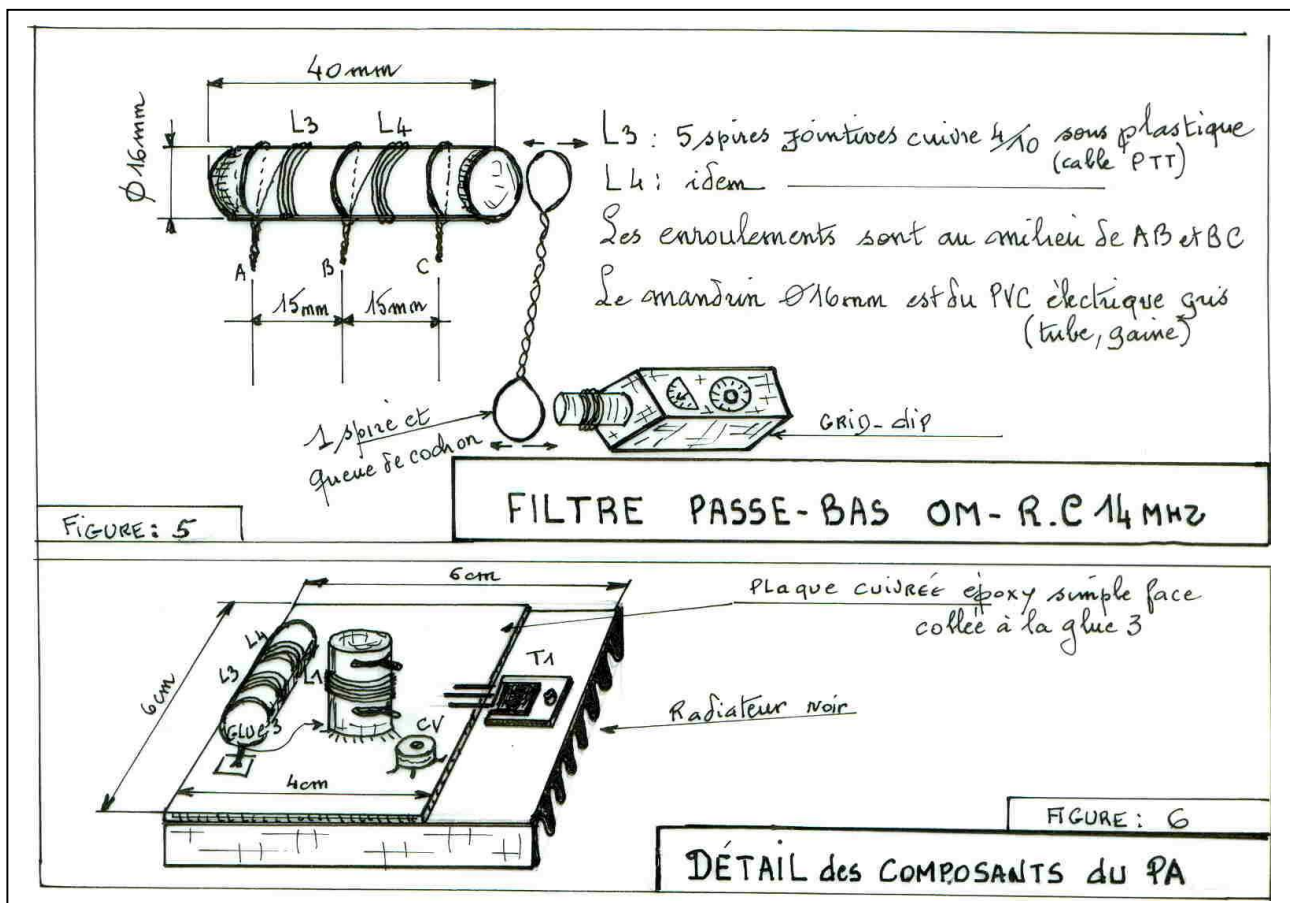 40mm
L3 L4
Ø16mm
A B C
15mm 15mm
L3 : 5 spires jointives cuivre 4/10 sous plastique
(cable PTT)
L4 : idem
Les enroulements sont au milieu de AB et BC
Le mandrin Ø16mm est du PVC électrique gris
(tube, gaine)
1 spire et
queue de cochon
GRID-dip
FIGURE : 5
FILTRE PASSE-BAS OM-R.C 14 MHz
6cm
PLAQUE CUIVRÉE époxy simple face
collée à la glue 3
L4
L3
L1
T1
6cm
Radiateur Noir
GLUE 3
CV
4cm
FIGURE : 6
DÉTAIL des COMPOSANTS du PA